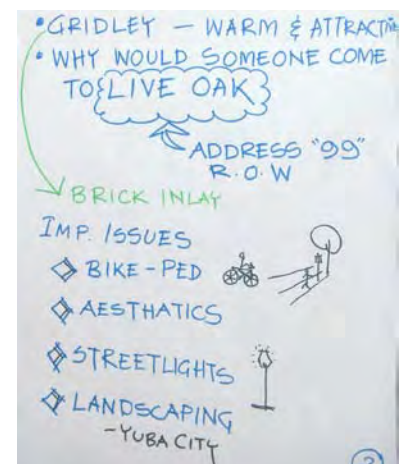 • GRIDLEY – WARM & ATTRACTIVE
• WHY WOULD SOMEONE COME
TO LIVE OAK
ADDRESS "99"
R.O.W
BRICK INLAY
IMP. ISSUES
BIKE-PED
AESTHATICS
STREETLIGHTS
LANDSCAPING
-YUBA CITY